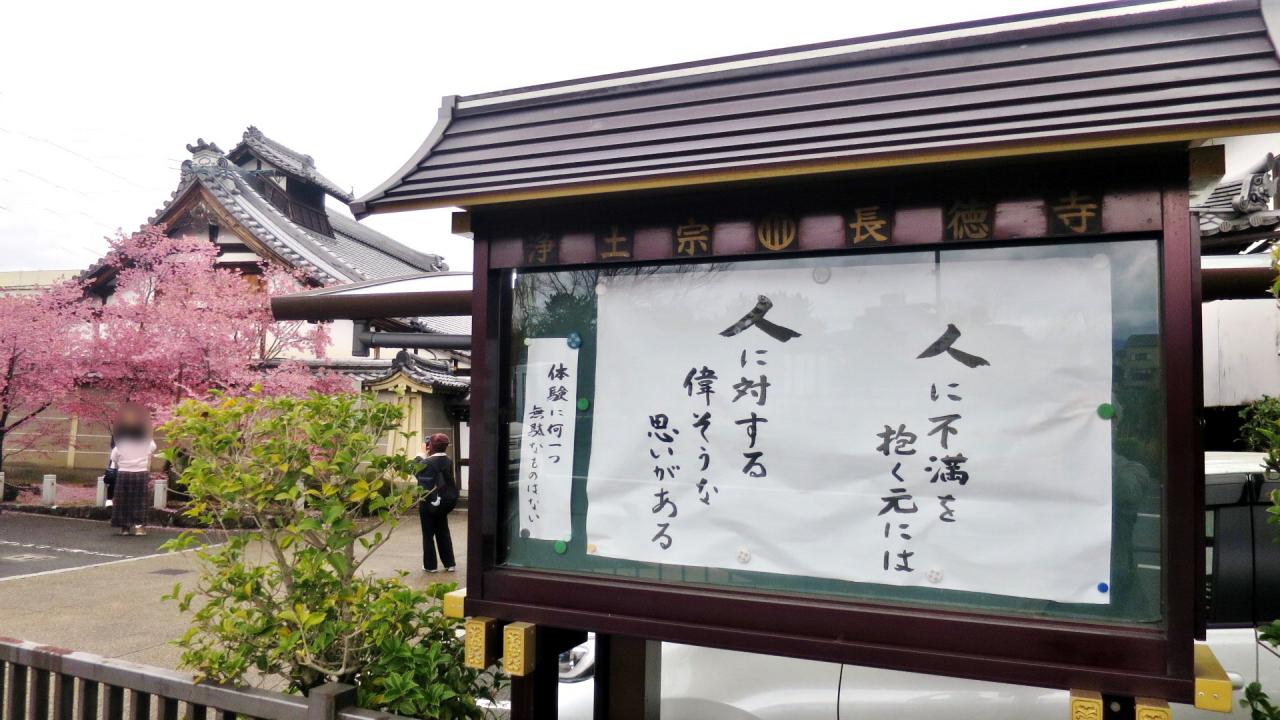 浄土宗 長徳寺
人に不満を
抱く元には
人に対する
偉そうな
思いがある
体験に何一つ
無駄なものはない